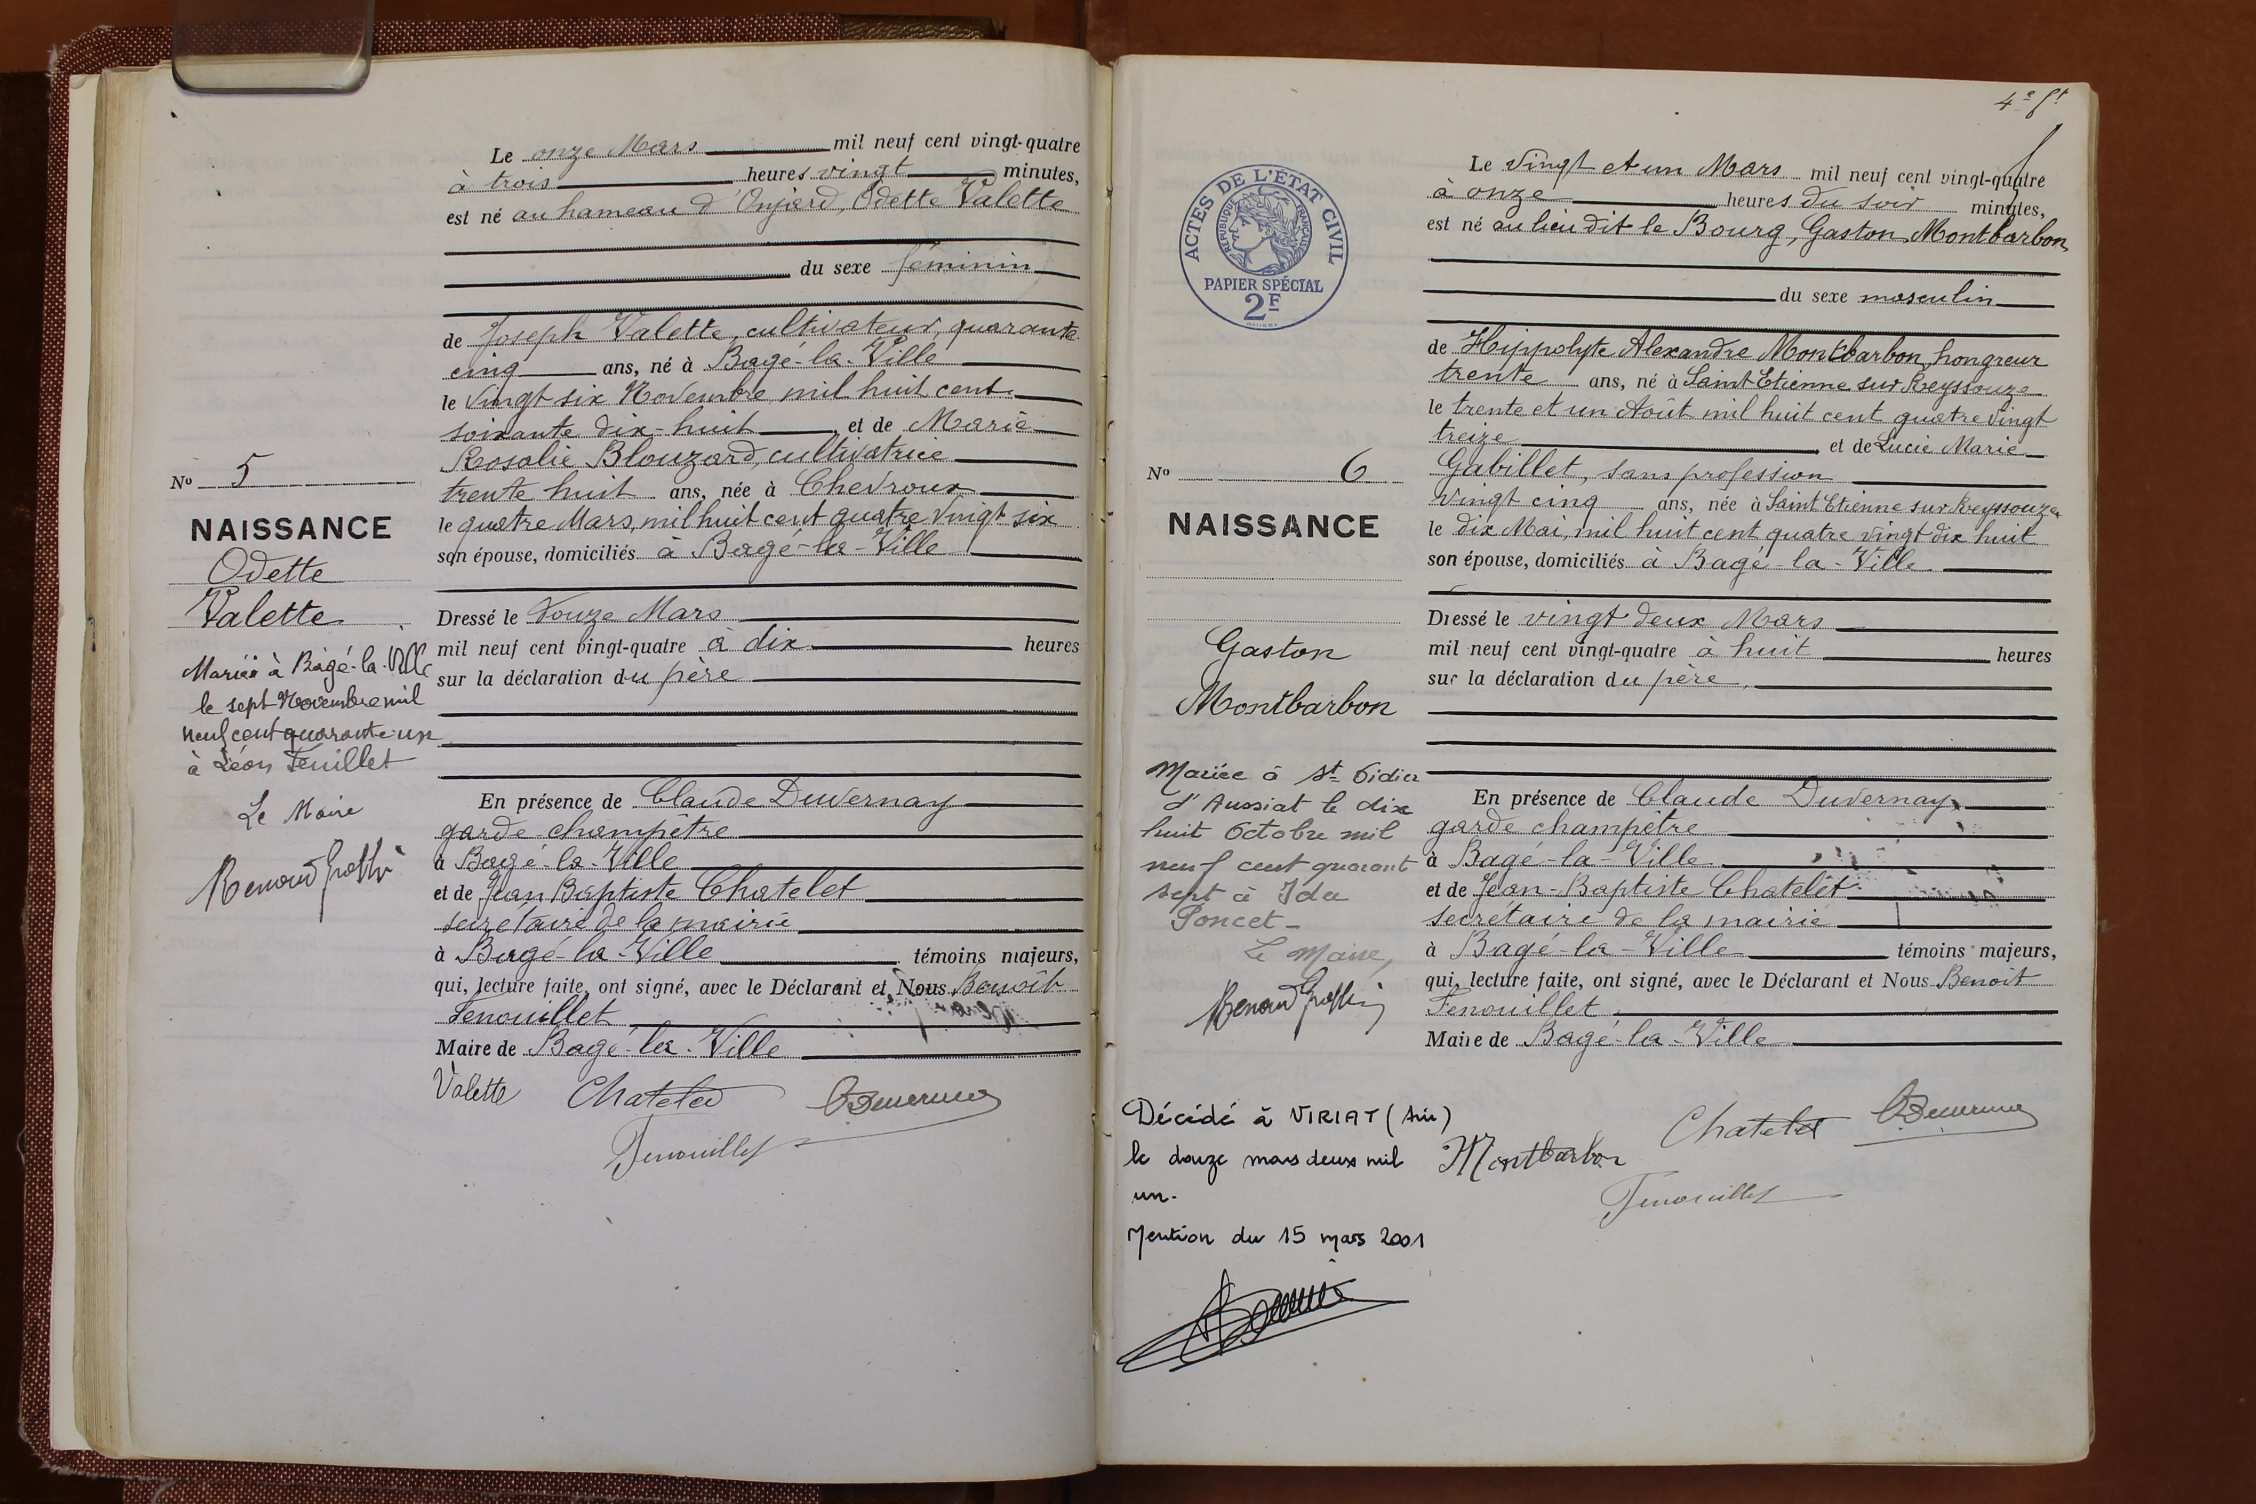 Le onze Mars mil neuf cent vingt-quatre
à trois heures vingt minutes,
est né au hameau d'Onjard, Odette Valette
du sexe féminin
de Joseph Valette, cultivateur, quarante
cinq ans, né à Bagé-la-Ville
le vingt six Novembre mil huit cent
soixante dix-huit, et de Marie
Rosalie Blouzard, cultivatrice
trente huit ans, née à Chevroux
le quatre Mars, mil huit cent quatre vingt six
son épouse, domiciliés à Bagé-la-Ville
No 5
NAISSANCE
Odette
Valette
Mariée à Bâgé-la-Ville
le sept Novembre mil
neuf cent quarante un
à Léon Feuillet
Le Maire
Dressé le douze Mars
mil neuf cent vingt-quatre à dix heures
sur la déclaration du père
En présence de Claude Duvernay
garde-champêtre
à Bagé-la-Ville
et de Jean Baptiste Chatelet
secrétaire de la mairie
à Bagé-la-Ville témoins majeurs,
qui, lecture faite, ont signé, avec le Déclarant et Nous Benoît
Fenouillet
Maire de Bagé-la-Ville
Valette Chatelet
Fenouillet
4e ft
ACTES DE L'ÉTAT CIVIL
RÉPUBLIQUE FRANÇAISE
PAPIER SPÉCIAL
2F
Le vingt et un Mars mil neuf cent vingt-quatre
à onze heures du soir minutes,
est né au lieu dit le Bourg, Gaston Montbarbon
du sexe masculin
de Hippolyte Alexandre Montbarbon, hongreur
trente ans, né à Saint Etienne sur Reyssouze
le trente et un Août mil huit cent quatre vingt
treize et de Lucie Marie
Gabillet, sans profession
vingt cinq ans, née à Saint Etienne sur Reyssouze
le dix Mai, mil huit cent quatre vingt dix huit
son épouse, domiciliés à Bagé-la-Ville
No 6
NAISSANCE
Gaston
Montbarbon
Mariée à St Didier
d'Aussiat le dix
huit Octobre mil
neuf cent quarant
sept à Ida
Poncet -
Le Maire,
Dressé le vingt deux Mars
mil neuf cent vingt-quatre à huit heures
sur la déclaration du père,
En présence de Claude Duvernay,
garde champêtre
à Bagé-la-Ville
et de Jean-Baptiste Chatelet
secrétaire de la mairie
à Bagé-la-Ville témoins majeurs,
qui, lecture faite, ont signé, avec le Déclarant et Nous Benoit
Fenouillet
Maire de Bagé-la-Ville
Chatelet
Montbarbon
Fenouillet
Décédé à VIRIAT (Ain)
le douze mars deux mil
un.
Mention du 15 mars 2001